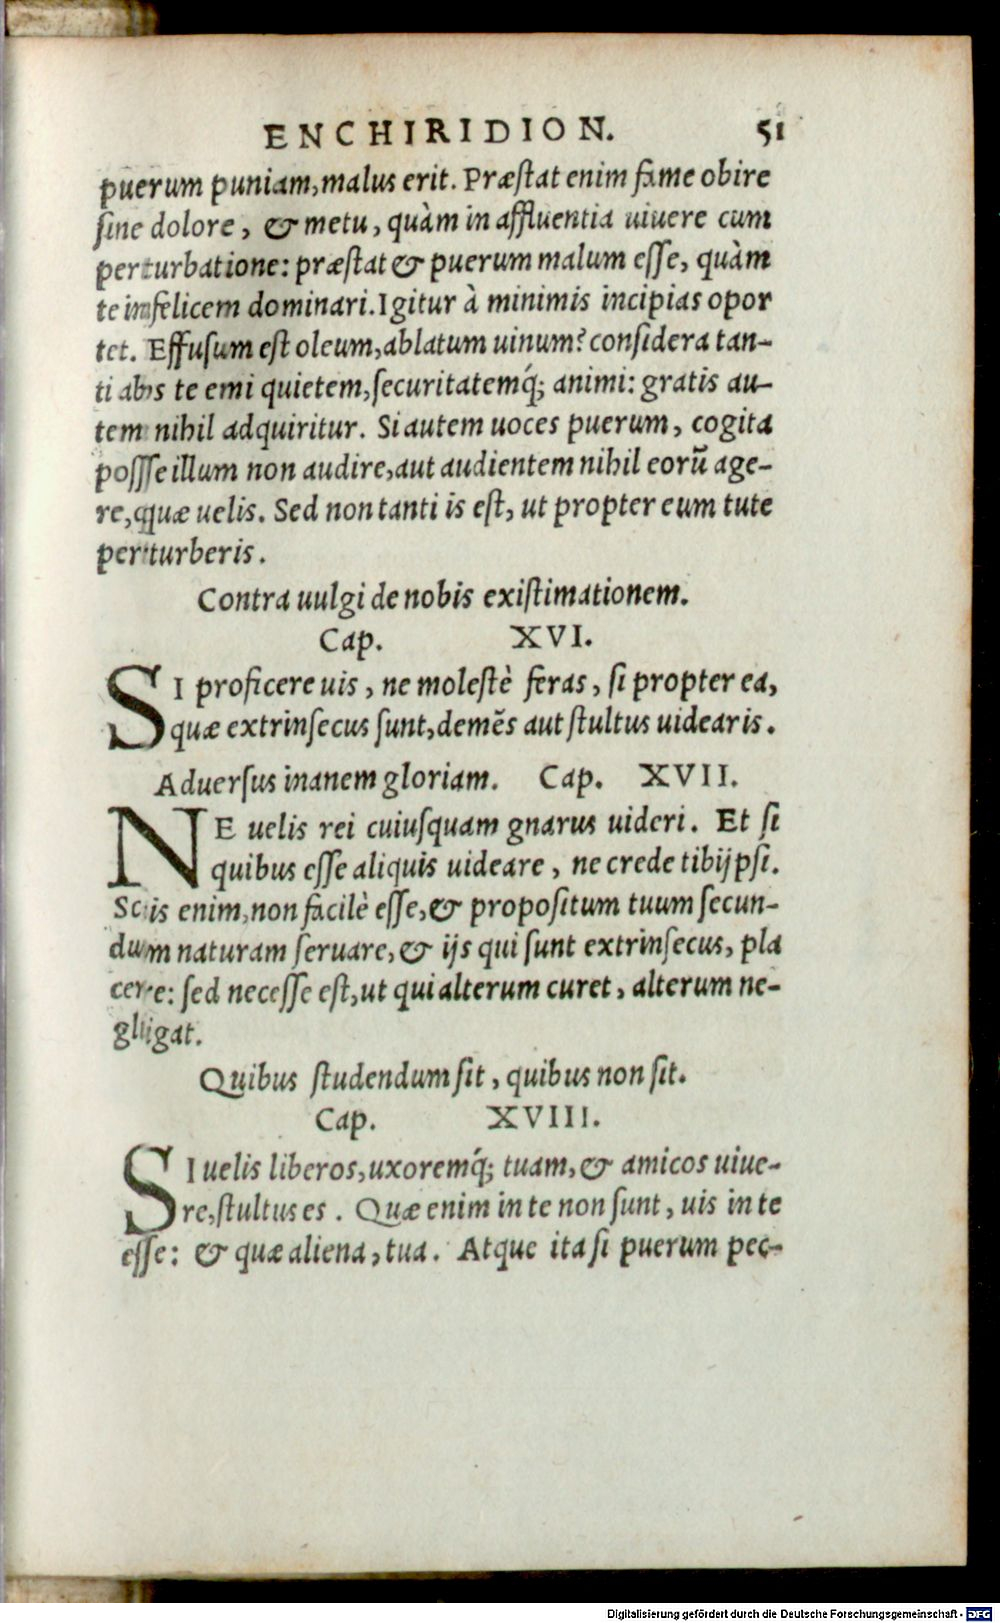 ENCHIRIDION. 51
puerum puniam, malus erit. Præstat enim fame obire
sine dolore, & metu, quàm in affluentia uiuere cum
perturbatione: præstat & puerum malum esse, quàm
te infelicem dominari. Igitur à minimis incipias opor
tet. Effusum est oleum, ablatum uinum? considera tan-
ti abs te emi quietem, securitatemq́; animi: gratis au-
tem nihil adquiritur. Si autem uoces puerum, cogita
posse illum non audire, aut audientem nihil eorũ age-
re, quæ uelis. Sed non tanti is est, ut propter eum tute
perturberis.
Contra uulgi de nobis existimationem.
Cap. XVI.
SI proficere uis, ne molestè feras, si propter ea,
quæ extrinsecus sunt, demẽs aut stultus uidearis.
Aduersus inanem gloriam. Cap. XVII.
NE uelis rei cuiusquam gnarus uideri. Et si
quibus esse aliquis uideare, ne crede tibijpsi.
Scis enim, non facilè esse, & propositum tuum secun-
dum naturam seruare, & ijs qui sunt extrinsecus, pla
cere: sed necesse est, ut qui alterum curet, alterum ne-
gligat.
Quibus studendum sit, quibus non sit.
Cap. XVIII.
SI uelis liberos, uxoremq́; tuam, & amicos uiue-
re, stultus es. Quæ enim in te non sunt, uis in te
esse: & quæ aliena, tua. Atque ita si puerum pec-
Digitalisierung gefördert durch die Deutsche Forschungsgemeinschaft - DFG